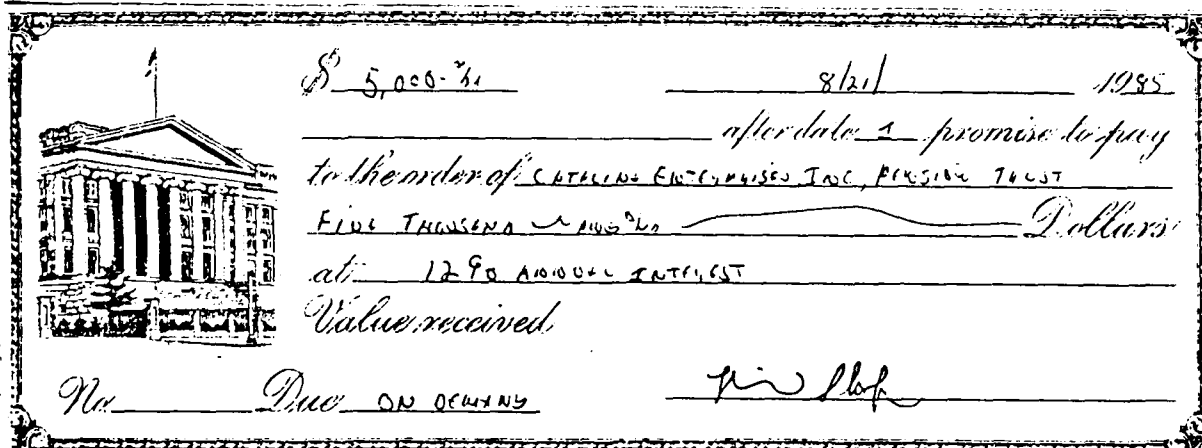 $ 5,000- 8/21/ 1985
after date I promise to pay
to the order of CATALINA ENTERPRISES INC, PENSION TRUST
FIVE THOUSAND AND Dollars
at 12% ANNUAL INTEREST
Value received
No Due ON DEMAND